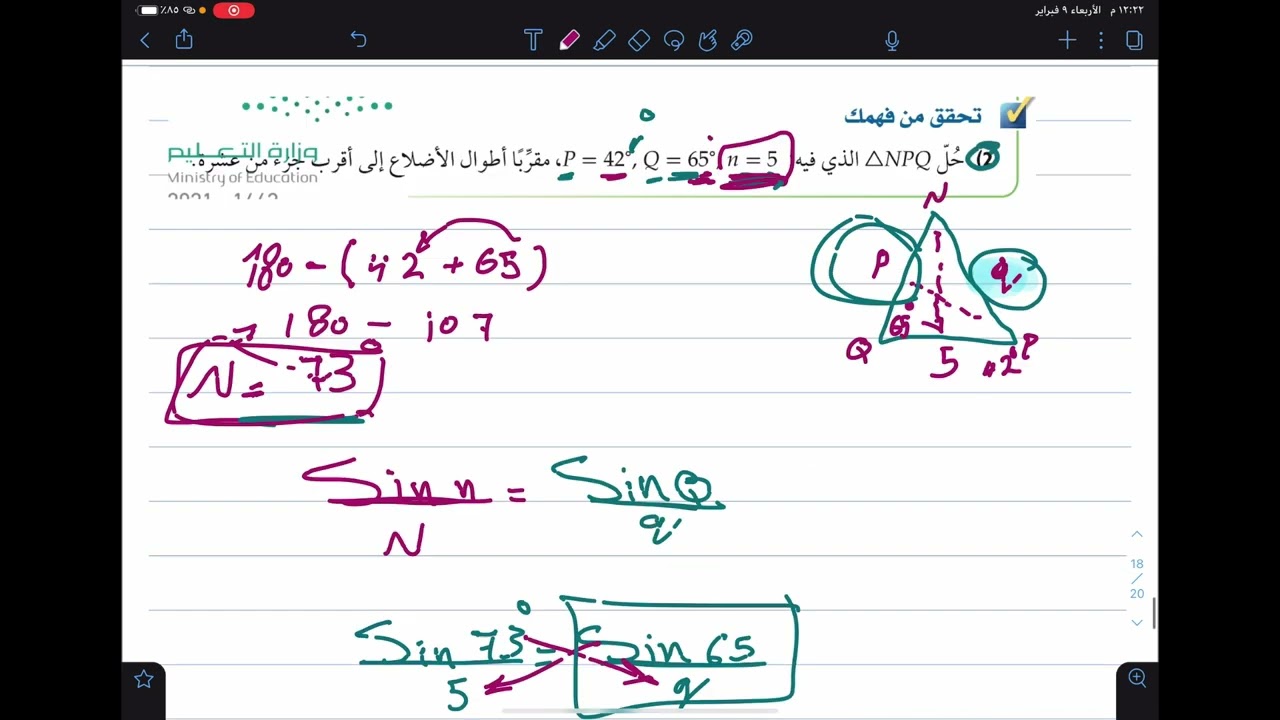 ١٢:٢٢ م الأربعاء ٩ فبراير
٪٨٥
تحقق من فهمك
2) حُلّ △NPQ الذي فيه P = 42°, Q = 65°, n = 5، مقرِّبًا أطوال الأضلاع إلى أقرب جزء من عشرة.
وزارة التعليم
Ministry of Education
2021 - 1443
N
P
q
65°
Q
5
42°
P
180 - (42 + 65)
180 - 107
N = 73°
Sin n / N = Sin Q / q
Sin 73° / 5 = Sin 65 / q
18
/
20